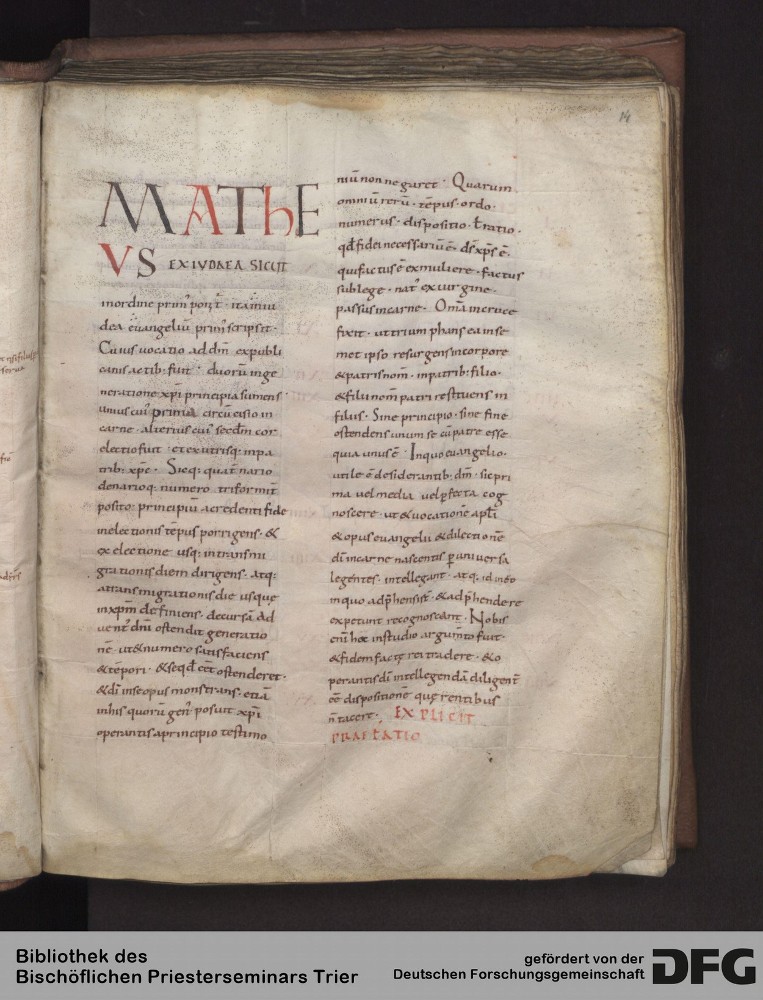 14
MATHE
VS EX IVDAEA SICUT
inordine prim' poṅt̄ · itainiu
dea euangeliū prim' scripsit ·
Cuius vocatio ad dm̄ expubli
canis actib: fuit · duorū inge
neratione xp̄i principia sumens
unius cui' prima circūcisio in
carne · alterius cui' secdm̄ cor
electio fuit · et ex utrisq: inpa
trib: xp̄c · Sicq: quat'nario
denarioq: numero triformit̄
posito · principiū acredentifide
inelectionis tēpus porrigens · &
ex electione usq: intransmi
grationis diem dirigens · atq:
atransmigrationis die usque
inxpm̄ definiens · decursā ad
uent' dn̄i ostendit generatio
nē · ut & numero satisfaciens
& tēpori · & seqd̄ eēt ostenderet ·
& dī inse opus monstrans · etiā
inhis quorū gen' posuit xp̄i
operantis aprincipio testimo
niū non negaret · Quarum
omniū rerū · tēpus · ordo ·
numerus · dispositio · t ratio ·
qd̄ fidei necessariū ē · d̄s xp̄s ē ·
qui factus ē ex muliere · factus
sublege · nat' ex uirgine ·
passus incarne · Omīa incruce
fixit · ut triumphans ea inse
met ipso resurgens incorpore
& patris nom̄ · inpatrib: filio ·
& filii nom̄ patri restituens in
filius · Sine principio · sine fine
ostendens unum se cū patre esse
quia unus ē · Inquo euangelio ·
utile ē desiderantib: dm̄ · sic pri
ma vel media vel pfecta cog
noscere · ut & vocationē apl̄i
& opus euangelii & dilectionē
dī incarne nascentis p universa
legentes · intellegant · atq: id ineo
inquo adphensi st̄ · & adphendere
expetunt recognoscant · Nobis
enī hoc instudio argum̄to fuit ·
& fidem factę rei tradere · & o
perantis dī intellegendā diligent'
eē dispositionē quęrentibus
n̄ tacere · EXPLICIT
PRAEFATIO
Bibliothek des
Bischöflichen Priesterseminars Trier
gefördert von der
Deutschen Forschungsgemeinschaft
DFG